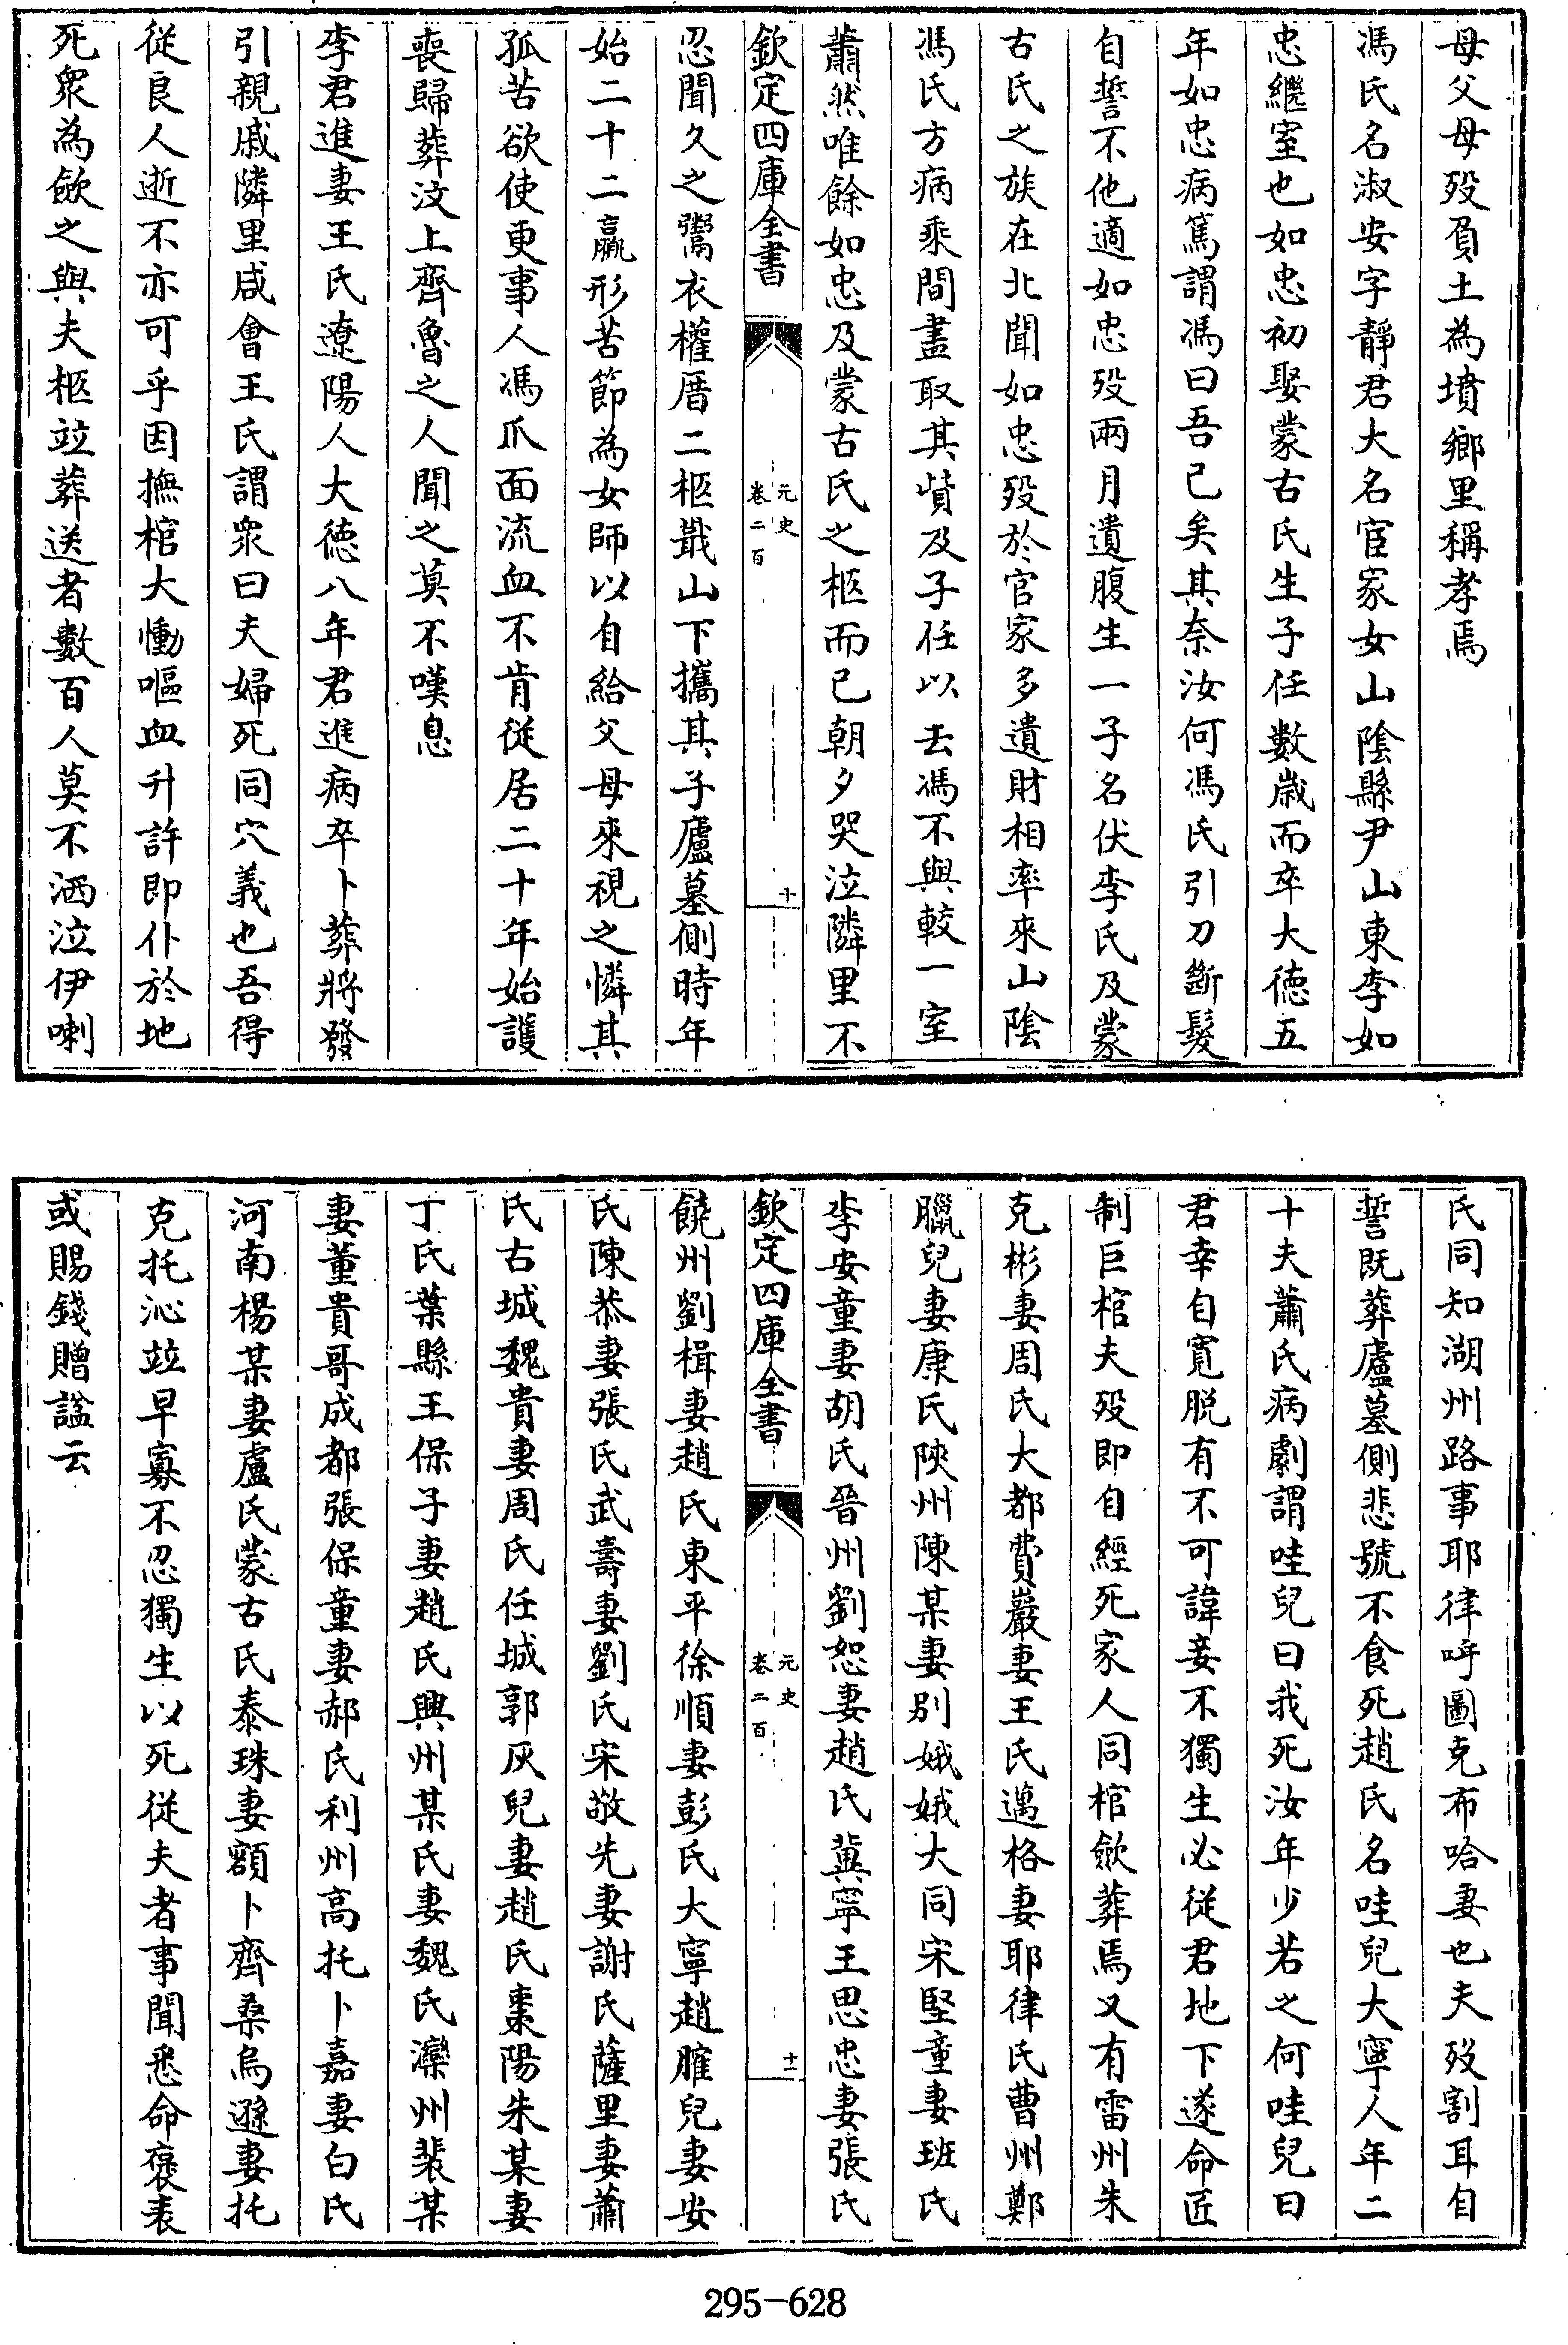 母父母歿負土為墳鄉里稱孝焉
馮氏名淑安字靜君大名宦家女山陰縣尹山東李如
忠繼室也如忠初娶蒙古氏生子任數歲而卒大徳五
年如忠病篤謂馮曰吾已矣其奈汝何馮氏引刀斷髮
自誓不他適如忠歿兩月遺腹生一子名伏李氏及蒙
古氏之族在北聞如忠歿於官家多遺財相率來山陰
馮氏方病乘間盡取其貲及子任以去馮不與較一室
蕭然唯餘如忠及蒙古氏之柩而已朝夕哭泣隣里不
欽定四庫全書
元史
卷二百
十
忍聞久之鬻衣權厝二柩蕺山下攜其子廬墓側時年
始二十二羸形苦節為女師以自給父母來視之憐其
孤苦欲使更事人馮爪面流血不肯從居二十年始護
喪歸葬汶上齊魯之人聞之莫不嘆息
李君進妻王氏遼陽人大徳八年君進病卒卜葬將發
引親戚隣里咸會王氏謂衆曰夫婦死同穴義也吾得
從良人逝不亦可乎因撫棺大慟嘔血升許即仆於地
死衆為斂之與夫柩竝葬送者數百人莫不洒泣伊喇
氏同知湖州路事耶律呼圖克布哈妻也夫歿割耳自
誓既葬廬墓側悲號不食死趙氏名哇兒大寧人年二
十夫蕭氏病劇謂哇兒曰我死汝年少若之何哇兒曰
君幸自寬脫有不可諱妾不獨生必從君地下遂命匠
制巨棺夫歿即自經死家人同棺斂葬焉又有雷州朱
克彬妻周氏大都費巖妻王氏邁格妻耶律氏曹州鄭
臘兒妻康氏陝州陳某妻別娥娥大同宋堅童妻班氏
李安童妻胡氏晉州劉恕妻趙氏冀寧王思忠妻張氏
欽定四庫全書
元史
卷二百
十一
饒州劉楫妻趙氏東平徐順妻彭氏大寧趙脽兒妻安
氏陳恭妻張氏武壽妻劉氏宋敬先妻謝氏薩里妻蕭
氏古城魏貴妻周氏任城郭灰兒妻趙氏棗陽朱某妻
丁氏葉縣王保子妻趙氏興州某氏妻魏氏灤州裴某
妻董貴哥成都張保童妻郝氏利州高托卜嘉妻白氏
河南楊某妻盧氏蒙古氏泰珠妻額卜齊桑烏遜妻托
克托沁竝早寡不忍獨生以死從夫者事聞悉命褒表
或賜錢贈諡云
295-628